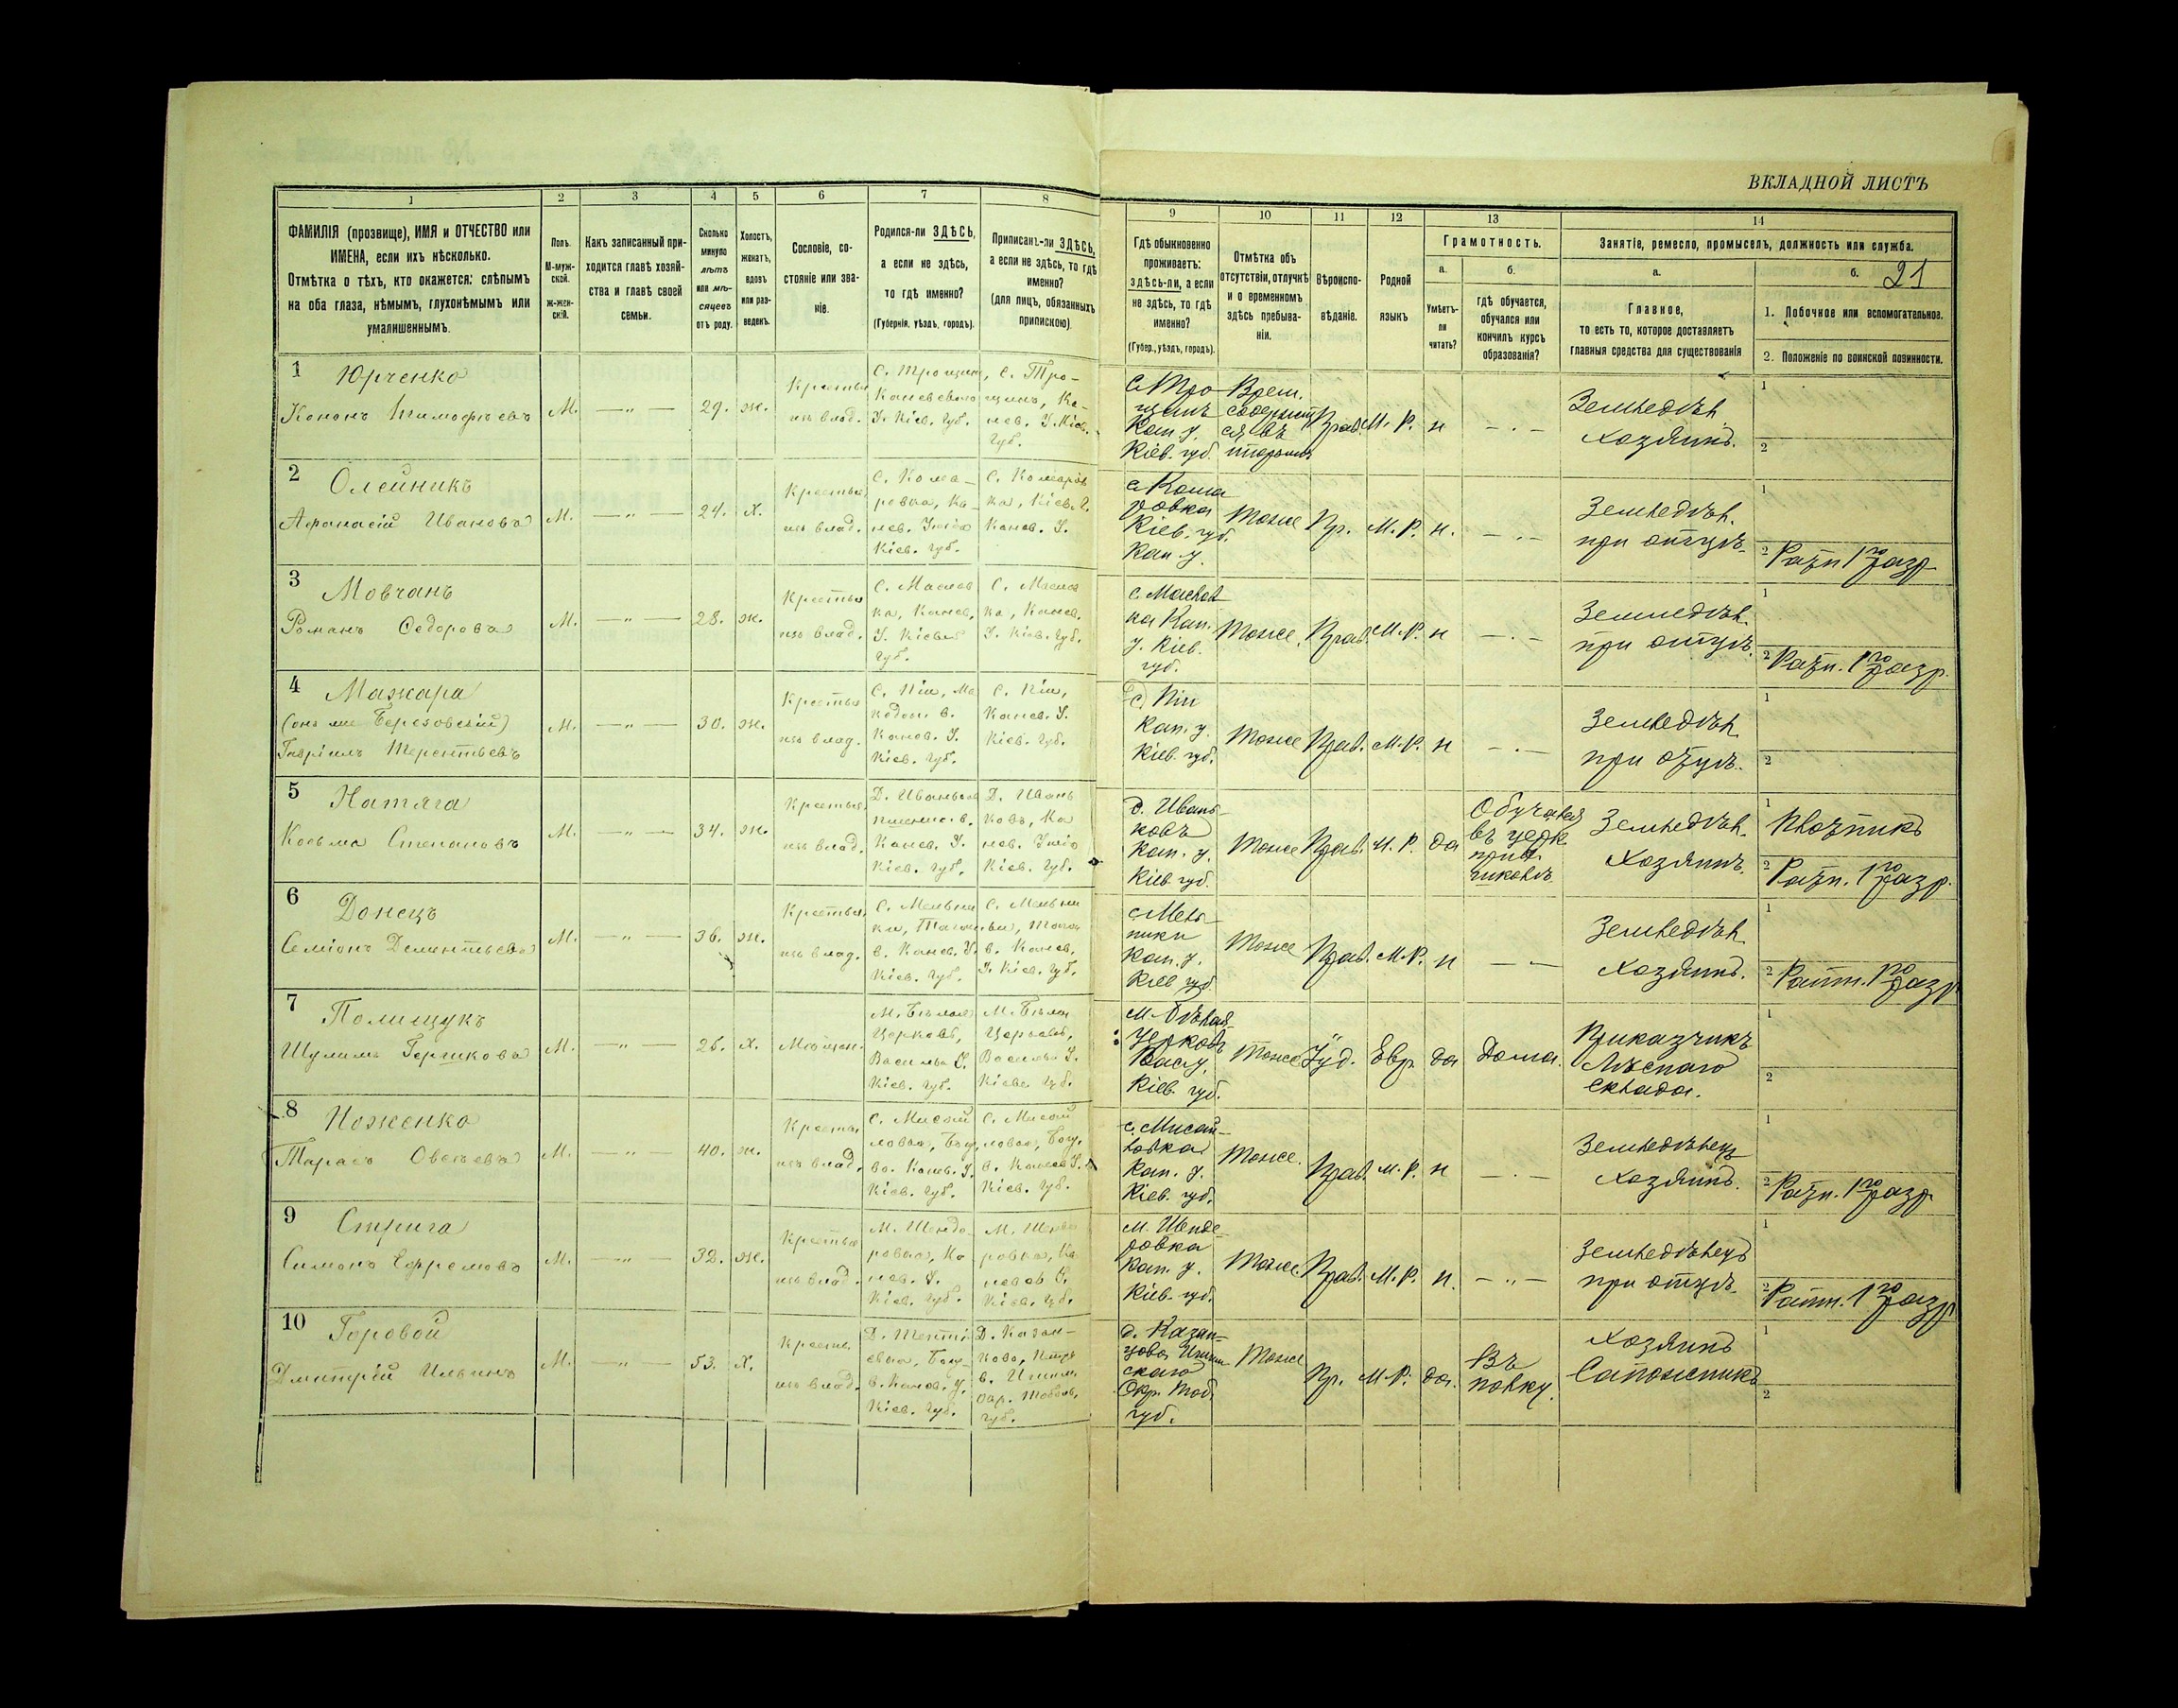 ВКЛАДНОЙ ЛИСТЪ
21
1 2 3 4 5 6 7 8 9 10 11 12 13 14
ФАМИЛІЯ (прозвище), ИМЯ и ОТЧЕСТВО или
ИМЕНА, если ихъ нѣсколько.
Отмѣтка о тѣхъ, кто окажется: слѣпымъ
на оба глаза, нѣмымъ, глухонѣмымъ или
умалишеннымъ.
Полъ.
М-муж-
ской.
ж-жен-
скій.
Какъ записанный при-
ходится главѣ хозяй-
ства и главѣ своей
семьи.
Сколько
минуло
лѣтъ
или мѣ-
сяцевъ
отъ роду.
Холостъ,
женатъ,
вдовъ
или раз-
веденъ.
Сословіе, со-
стояніе или зва-
ніе.
Родился-ли ЗДѢСЬ,
а если не здѣсь,
то гдѣ именно?
(Губернія, уѣздъ, городъ).
Приписанъ-ли ЗДѢСЬ,
а если не здѣсь, то гдѣ
именно?
(для лицъ, обязанныхъ
припискою)
Гдѣ обыкновенно
проживаетъ:
здѣсь-ли, а если
не здѣсь, то гдѣ
именно?
(Губер., уѣздъ, городъ).
Отмѣтка объ
отсутствіи, отлучкѣ
и о временномъ
здѣсь пребыва-
ніи.
Вѣроиспо-
вѣданіе.
Родной
языкъ
Грамотность.
а.
Умѣетъ-
ли
читать?
б.
гдѣ обучается,
обучался или
кончилъ курсъ
образованія?
Занятіе, ремесло, промыселъ, должность или служба.
а.
Главное,
то есть то, которое доставляетъ
главныя средства для существованія
б.
1. Побочное или вспомогательное.
2. Положеніе по воинской повинности.
1 Юрченко
Кононъ Тимофѣевъ
М. — „ — 29. ж.
Крестья
изъ влад.
С. Трощинъ,
Каневскаго
У. Кіев. Губ.
С. Тро-
щинъ, Ка-
нев. У. Кіев.
Губ.
с. Тро-
щинъ
Кан. у.
Кіев. губ.
Врем.
содержит
ся въ
тюрьмѣ
Прав. М. Р. н — . —
Земледѣл.
хозяинъ.
1
2
2 Олейникъ
Афанасій Ивановъ
М. — „ — 24. х.
Крестья
изъ влад.
С. Кома-
ровка, Ка-
нев. Уѣзда
Кіев. Губ.
С. Комаров
ка, Кіев. Г.
Канев. У.
с. Кома
ровка
Кіев. губ.
Кан. у.
Тоже Пр. М. Р. н. — . —
Земледѣл.
при отцѣ.
1
2 Ратн 1го разр.
3 Мовчанъ
Романъ Федоровъ
М. — „ — 28. ж.
Крестья
изъ влад.
С. Маслов
ка, Канев.
У. Кіевск
Губ.
С. Маслов
ка, Канев.
У. Кіев. Губ.
с. Маслов
ка Кан.
у. Кіев.
губ.
Тоже. Прав. М. Р. н — . —
Земледѣл.
при отцѣ.
1
2 Ратн. 1го разр.
4 Мажара
(онъ же Березовскій)
Гавріилъ Терентьевъ
М. — „ — 30. ж.
Крестья
изъ влад.
С. Піи, Ма
кедон. в.
Канев. У.
Кіев. Губ.
С. Піи,
Канев. У.
Кіев. Губ.
с. Піи
Кан. у.
Кіев. губ.
Тоже Прав. М. Р. н — . —
Земледѣл.
при отцѣ.
1
2
5 Натяга
Косьма Степановъ
М. — „ — 34. ж.
Крестья
изъ влад.
Д. Иваньков
Канев. У.
Кіев. Губ.
Д. Ивань
ковъ, Ка
нев. Уѣзда
Кіев. Губ.
д. Ивань-
ковъ
Кан. у.
Кіев. губ.
Тоже Прав. М. Р. да
Обучался
въ церк
прих.
Земледѣл.
Хозяинъ.
1 Плотникъ
2 Ратн. 1го разр.
6 Донецъ
Семіонъ Дементьевъ
М. — „ — 36. ж.
Крестья
изъ влад.
С. Мельни
ки,
в. Канев. У.
Кіев. Губ.
С. Мельни
в. Канев.
У. Кіев. Губ.
с. Мель-
ники
Кан. у.
Кіев губ
Тоже Прав. М. Р. н — —
Земледѣл.
хозяинъ.
1
2 Ратн. 1го разр.
7 Полищукъ
Шулимъ Гершковъ
М. — „ — 26. х.
Мѣщан.
М. Бѣлая
Церковь,
Васильк. У.
Кіев. Губ.
М. Бѣлая
Церковь,
Васильк. У.
Кіевс. Губ.
м. Бѣлая-
Церковь
Вас. у.
Кіев. губ.
Тоже Іуд. Евр. да Дома.
Приказчикъ
Лѣснаго
склада.
1
2
8 Ноженко
Тарасъ
М. — „ — 40. ж.
Крестья
изъ влад.
С. Мисай
ловка, Богу
во. Канев. У.
Кіев. Губ.
С. Мисай
ловка, Богу.
в. Канев. У.
Кіев. Губ.
с. Мисай-
ловка
Кан. у.
Кіев. губ.
Тоже. Прав. М. Р. н — . —
Земледѣлец
хозяинъ.
1
2 Ратн. 1го разр.
9 Стрига
Симонъ Ефремовъ
М. — „ — 32. ж.
Крестья
изъ влад.
М. Шенде
ровка, Ка
нев. У.
Кіев. Губ.
М. Шенде
ровка, Ка
невск У.
Кіев. Губ.
м. Шенде-
ровка
Кан. у.
Кіев. губ.
Тоже. Прав. М. Р. н. — „ —
Земледѣлецъ
при отцѣ.
1
2 Ратн. 1го разр
10 Горовой
Дмитрій Ильинъ
М. — „ — 53. х.
Крестья
изъ влад.
Д.
евка, Богу-
в. Канев. У.
Кіев. Губ.
Д. Казан-
в. Ишим
окр. Тобол.
губ.
д. Казан-
цова Ишим
скаго
Окр. Тоб.
губ.
Тоже Пр. М. Р. да.
Въ
полку.
Хозяинъ
Сапожникъ
1
2